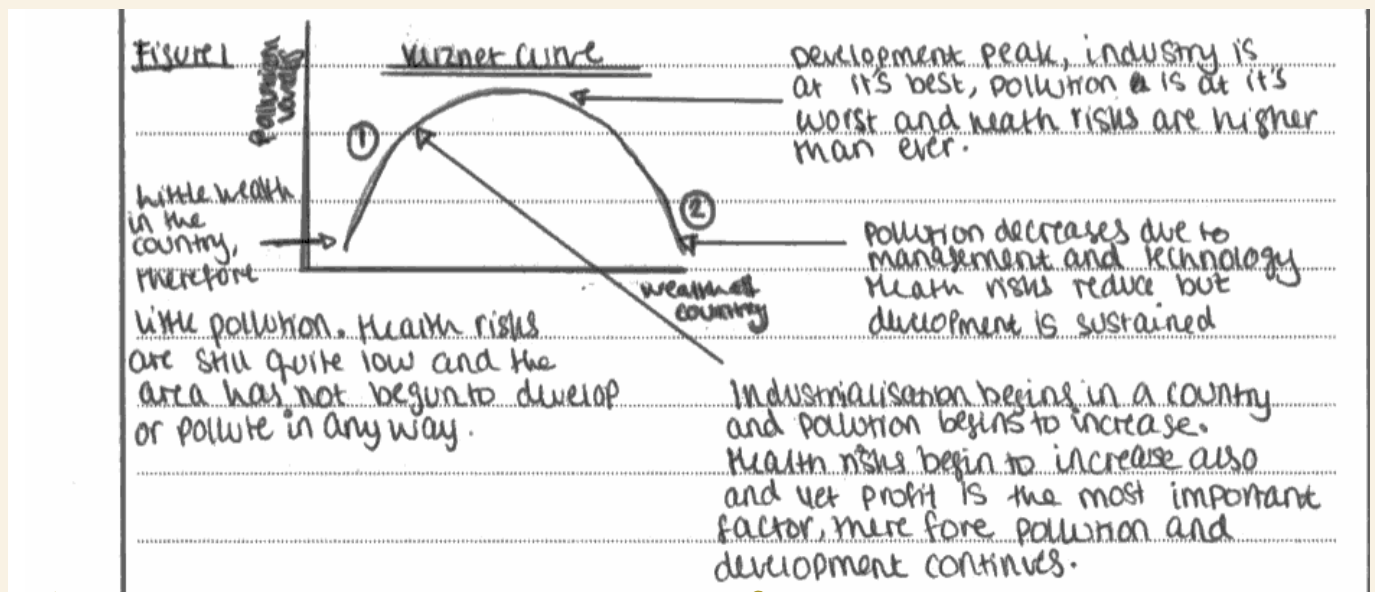 Figure 1
Kuznet Curve
Pollution
levels
Development peak, industry is
at it's best, pollution is at it's
worst and heath risks are higher
than ever.
①
Little wealth
in the
country,
therefore
little pollution. Health risks
are still quite low and the
area has not begun to develop
or pollute in any way.
②
Pollution decreases due to
management and technology
Heath risks reduce but
development is sustained
wealth of
country
Industrialisation begins in a country
and pollution begins to increase.
Health risks begin to increase also
and yet profit is the most important
factor, there fore pollution and
development continues.